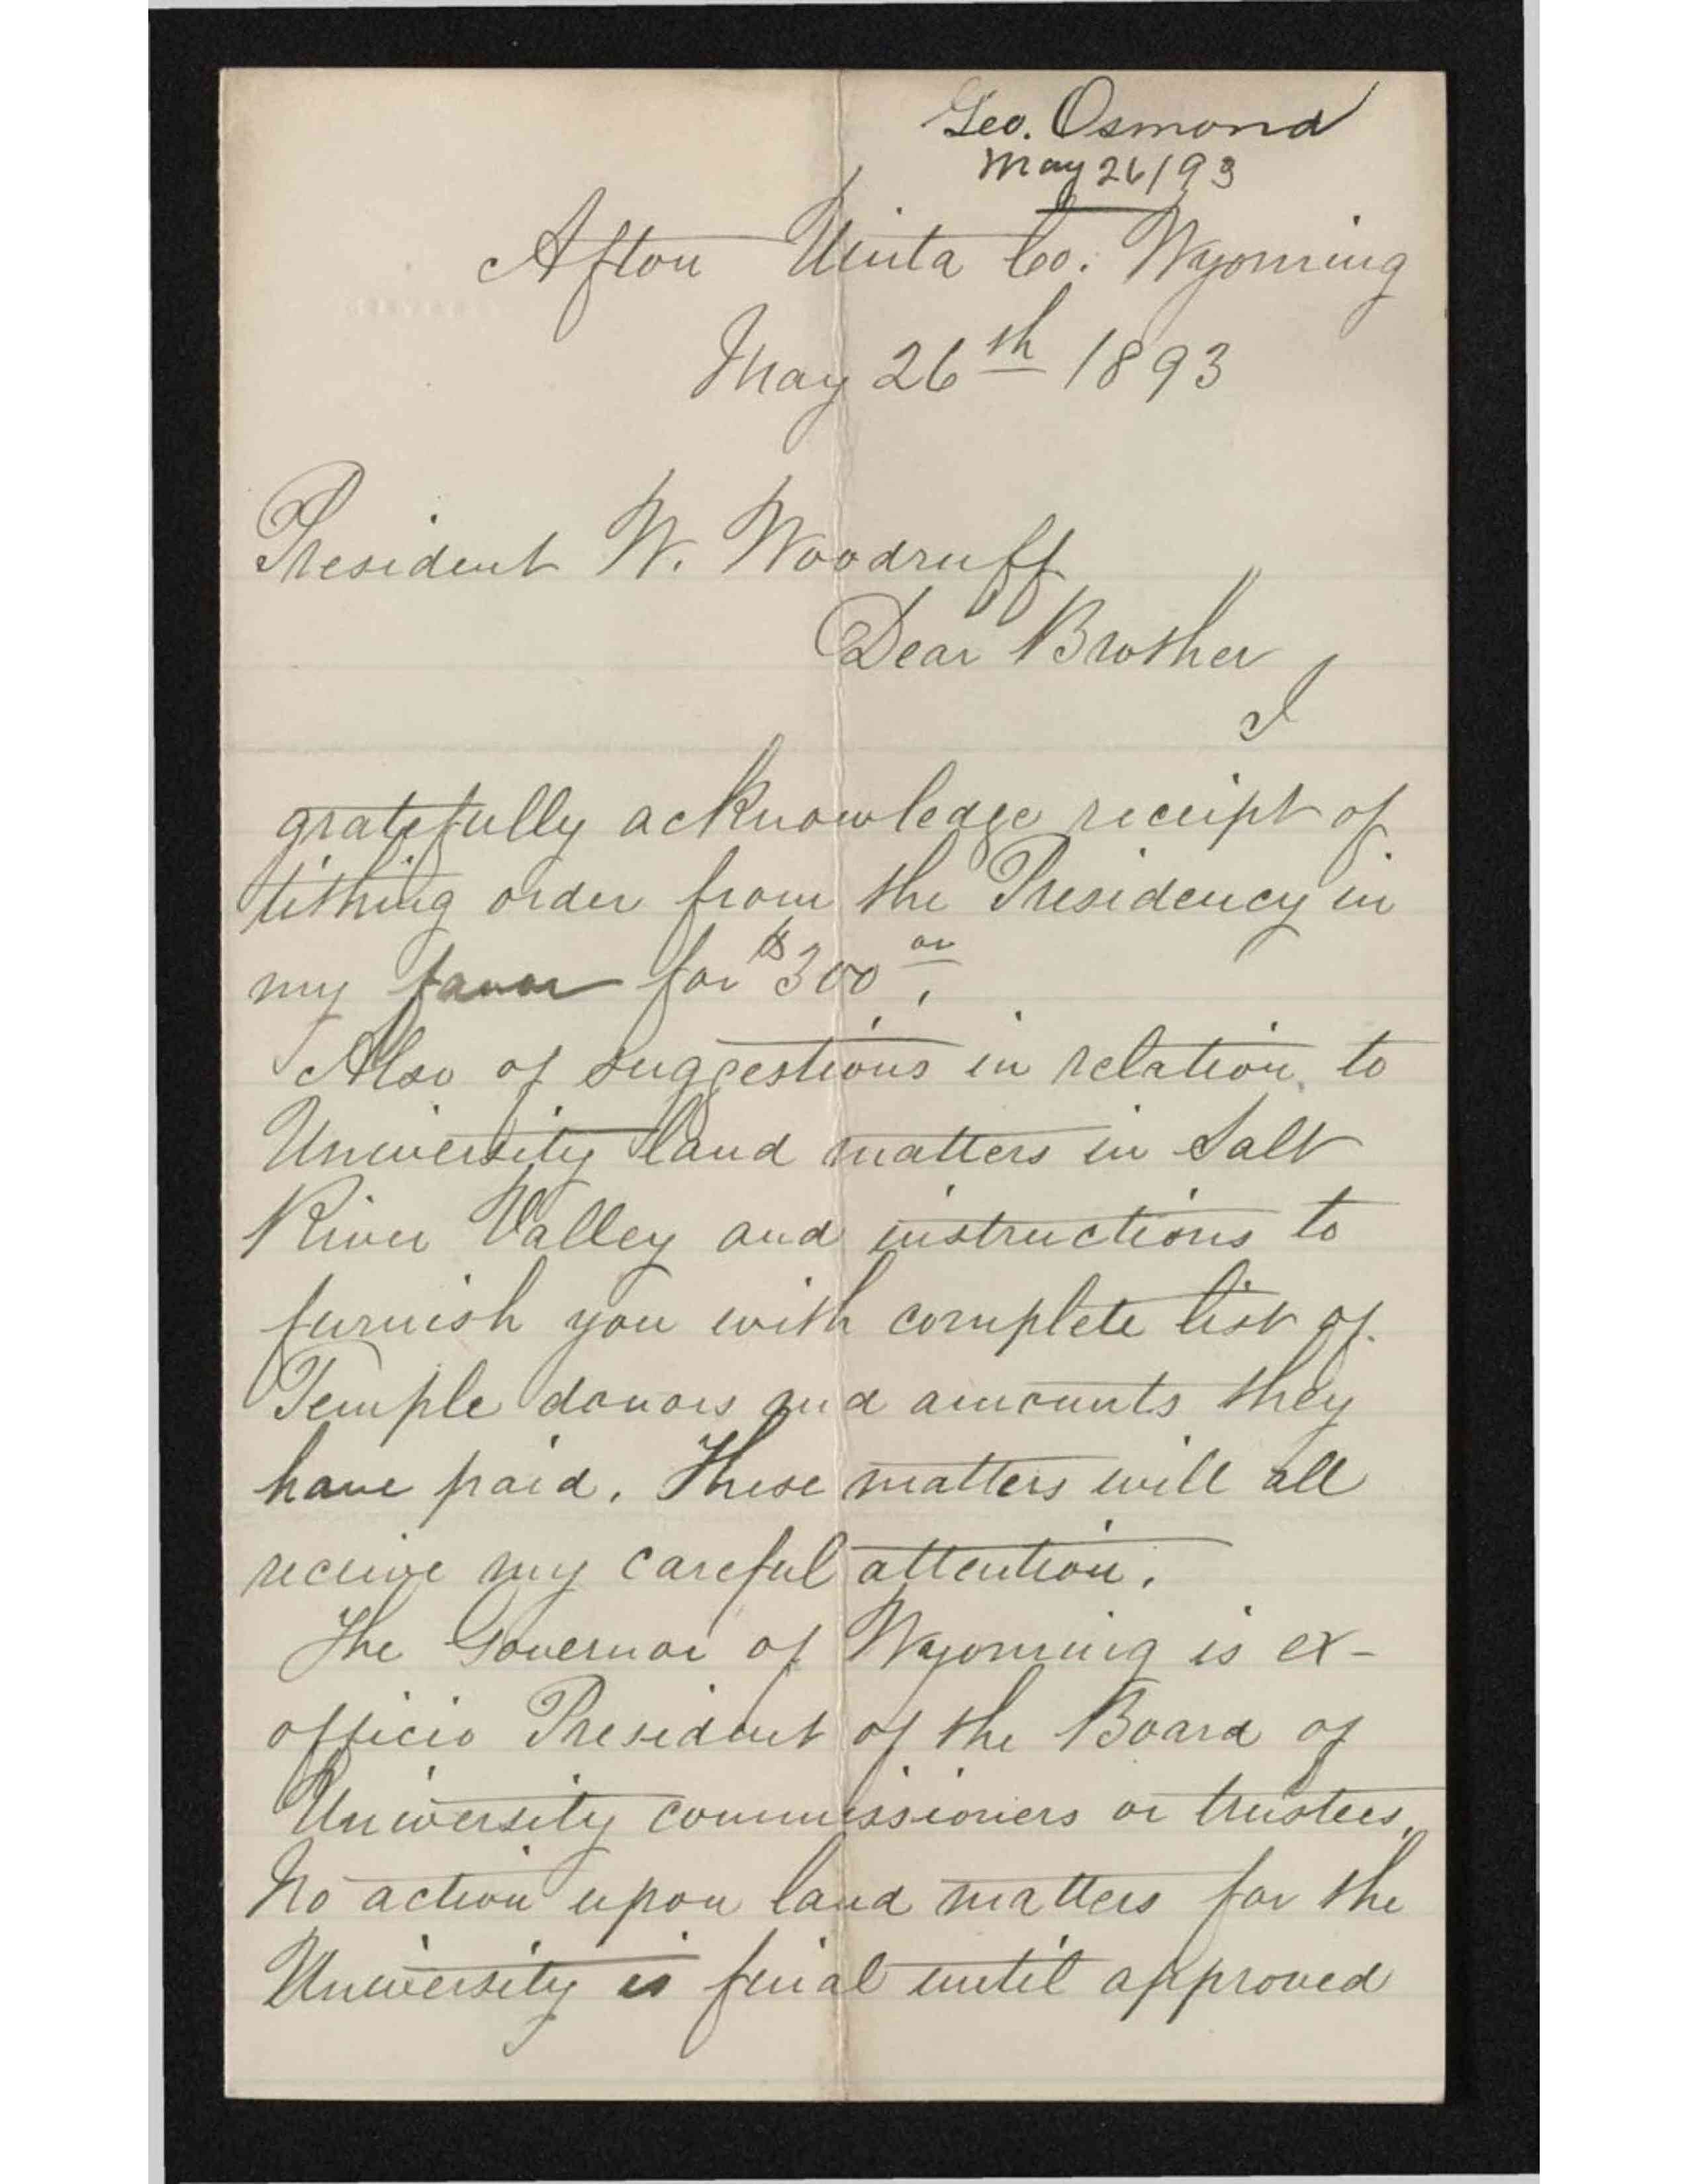 Geo. Osmond
May 26/93
Afton Uinta Co. Wyoming
May 26th 1893
President W. Woodruff
Dear Brother
I
gratefully acknowledge receipt of
tithing order from the Presidency in
my favor for $300 00.
Also of suggestions in relation to
University land matters in Salt
River Valley and instructions to
furnish you with complete list of
Temple donors and amounts they
have paid. These matters will all
receive my careful attention.
The Governor of Wyoming is ex-
officio President of the Board of
University commissioners or trustees.
No action upon land matters for the
University is final until approved